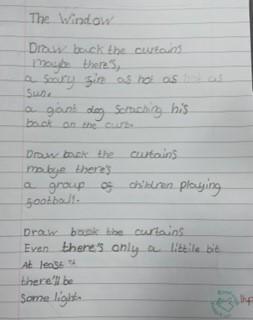 The Window
Draw back the curtains
maybe there's,
a scary fire as hot as hot as
sun.
a giant dog scraching his
back on the curb.
Draw back the curtains
mabye there's
a group of children playing
football.
Draw back the curtains
Even there's only a littile bit
At least
there'll be
some light.